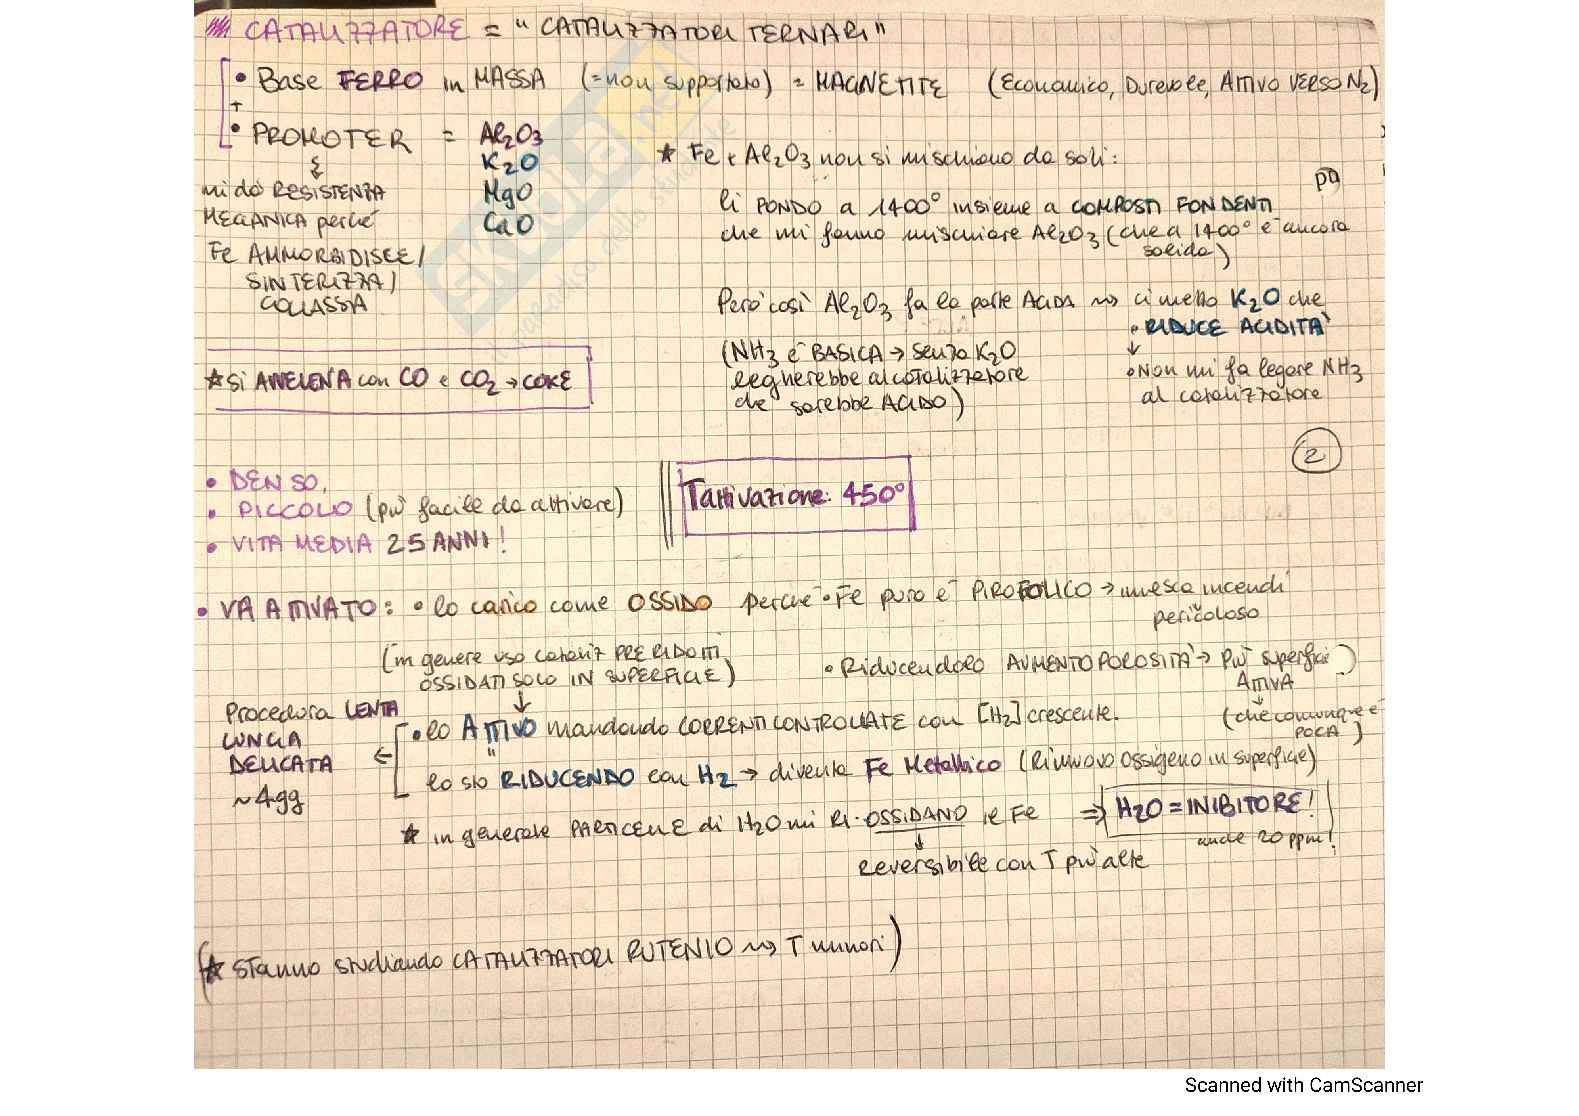 CATALIZZATORE = "CATALIZZATORI TERNARI"
• Base FERRO in MASSA (=non supportato) = MAGNETITE (Economico, Durevole, ATTIVO VERSO N2)
+
• PROMOTER = Al2O3
K2O
MgO
CaO
mi dà RESISTENZA
MECCANICA perché
Fe AMMORBIDISCE/
SINTERIZZA/
COLLASSA
★ Fe + Al2O3 non si mischiano da soli:
li FONDO a 1400° insieme a COMPOSTI FONDENTI
che mi fanno mischiare Al2O3 (che a 1400° è ancora
solida)
Però così Al2O3 fa la parte ACIDA → ci metto K2O che
• RIDUCE ACIDITÀ
↓
• Non mi fa legare NH3
al catalizzatore
(NH3 è BASICA → senza K2O
legherebbe al catalizzatore
che sarebbe ACIDO)
★ SI AVVELENA con CO e CO2 → COKE
2
• DENSO,
• PICCOLO (più facile da attivare)
• VITA MEDIA 25 ANNI!
Tattivazione: 450°
• VA ATTIVATO: • lo carico come OSSIDO perché • Fe puro è PIROFOLICO → innesca incendi
pericoloso
(in genere uso cataliz PRERIDOTTI
OSSIDATI SOLO IN SUPERFICIE)
• Riducendolo AUMENTO POROSITÀ → più superfici
ATTIVA
↓
(che comunque è
POCA)
Procedura LENTA
LUNGA
DELICATA
~4gg
↓
• lo ATTIVO mandando CORRENTI CONTROLLATE con [H2] crescente.
"
lo sto RIDUCENDO con H2 → diventa Fe Metallico (Rimuovo ossigeno in superficie)
★ in generale PARTICELLE di H2O mi RI-OSSIDANO il Fe ⇒ H2O = INIBITORE!
anche 20 ppm!
↓
reversibile con T più alte
(★ STANNO studiando CATALIZZATORI RUTENIO → T minori)
skuola.net
il paradiso dello studente
Scanned with CamScanner